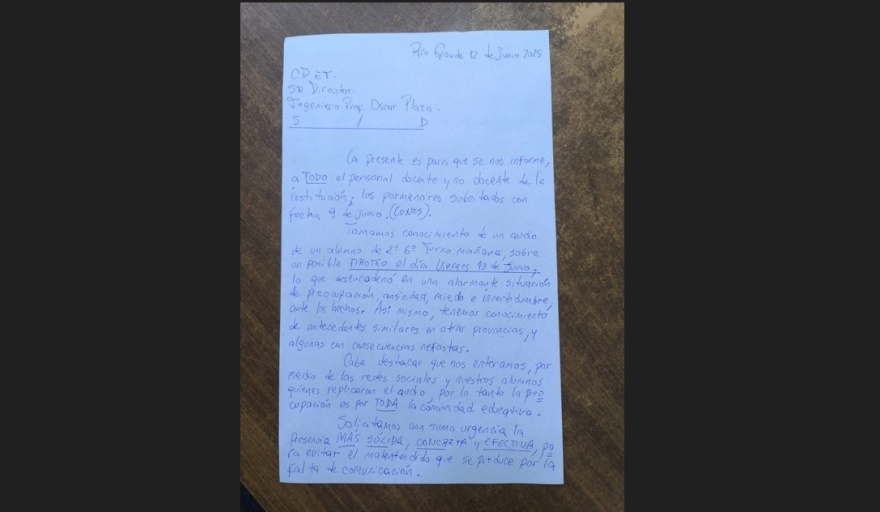 Río Grande 12 de Junio 2025
C.P.E.T.
Sr Director
Ingeniero Prof. Oscar Plaza.
S / D
La presente es para que se nos informe,
a TODO el personal docente y no docente de la
institución, los pormenores suscitados con
fecha 9 de junio. (LUNES).
Tomamos conocimiento de un audio
de un alumno de 2° 6° Turno mañana, sobre
un posible TIROTEO el día Viernes 13 de Junio,
lo que desencadenó en una alarmante situación
de preocupación, ansiedad, miedo e incertidumbre,
ante los hechos. Así mismo, tenemos conocimiento
de antecedentes similares en otras provincias, y
algunos con consecuencias nefastas.
Cabe destacar que nos enteramos, por
medio de las redes sociales y nuestros alumnos
quienes replicaron el audio, por lo tanto la preo
cupación es por TODA la comunidad educativa.
Solicitamos con suma urgencia la
presencia MÁS SÓLIDA, CONCRETA y EFECTIVA, pa
ra evitar el malentendido que se produce por la
falta de comunicación.